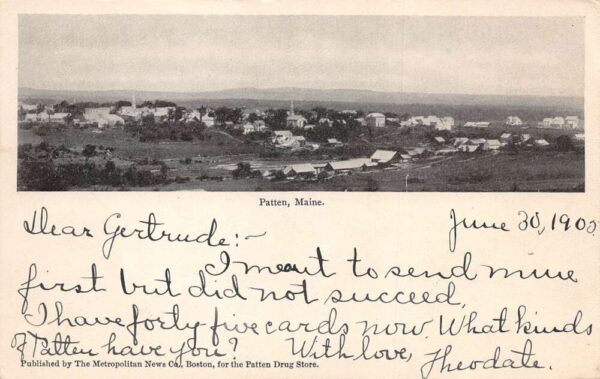 Patten, Maine.
June 30, 1905
Dear Gertrude:-
I meant to send mine
first but did not succeed.
I have forty five cards now. What kinds
of Patten have you? With love, Theodate.
Published by The Metropolitan News Co., Boston, for the Patten Drug Store.